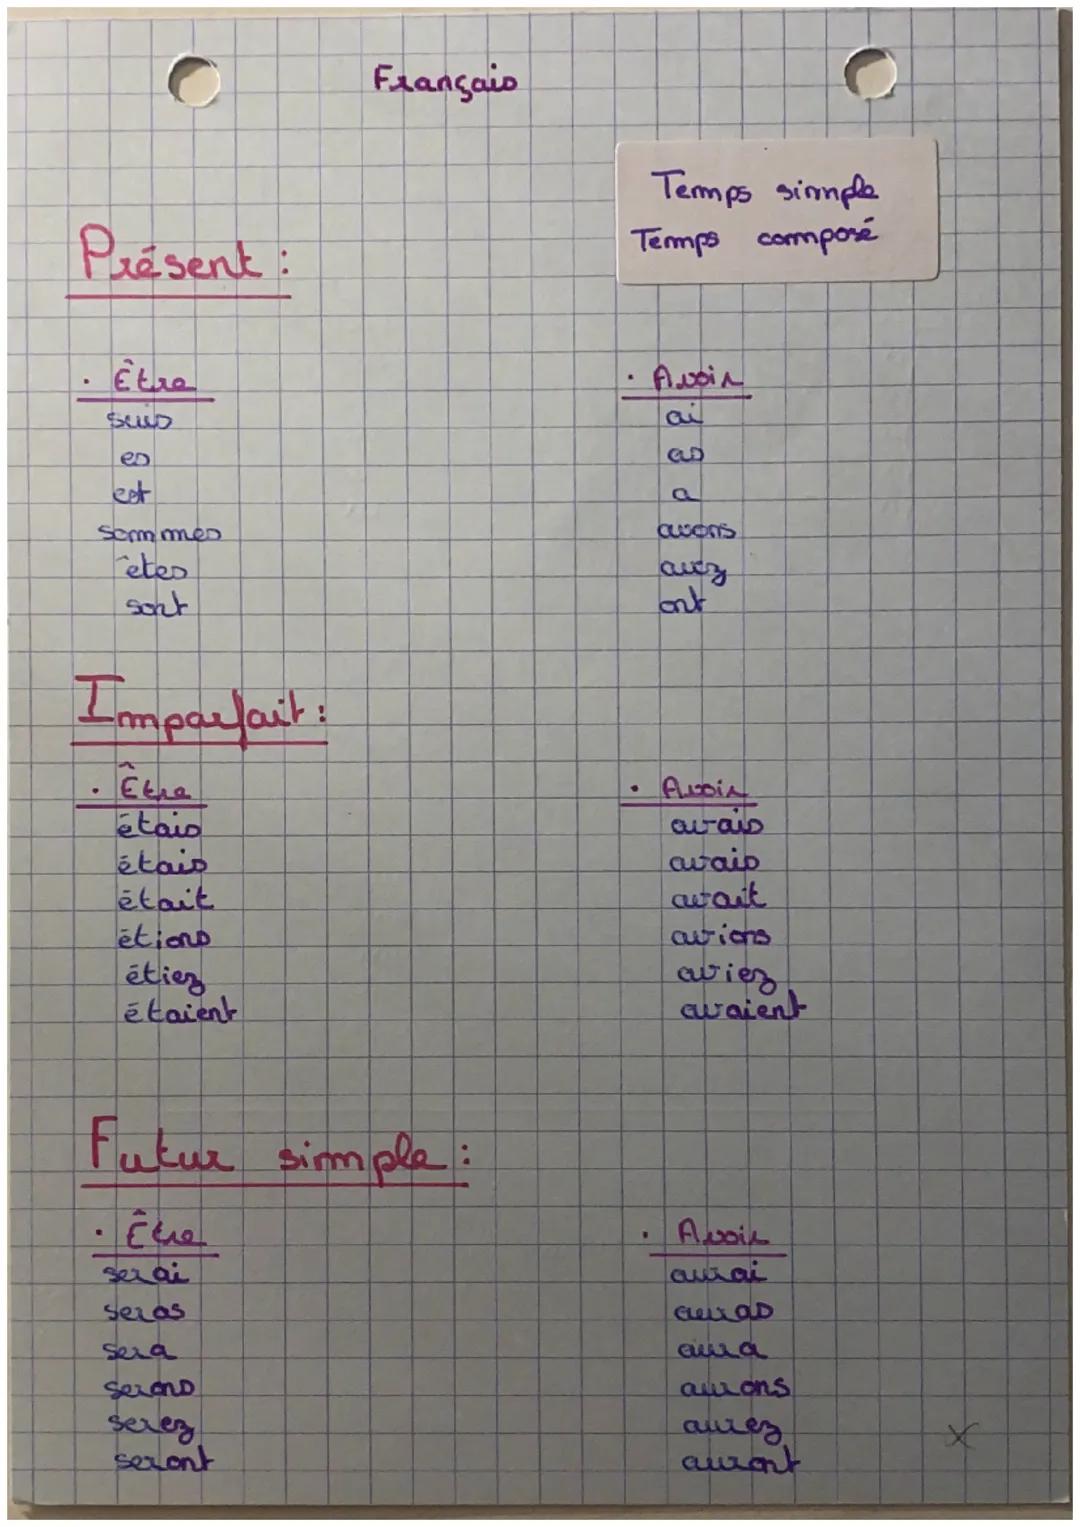 Français
Temps simple
Temps composé
Présent :
· Être
suis
es
est
sommes
êtes
sont
· Avoir
ai
as
a
avons
avez
ont
Imparfait :
· Être
étais
étais
était
étions
étiez
étaient
· Avoir
avais
avais
avait
avions
aviez
avaient
Futur simple :
· Être
serai
seras
sera
serons
serez
seront
· Avoir
aurai
auras
aura
aurons
aurez
auront
x